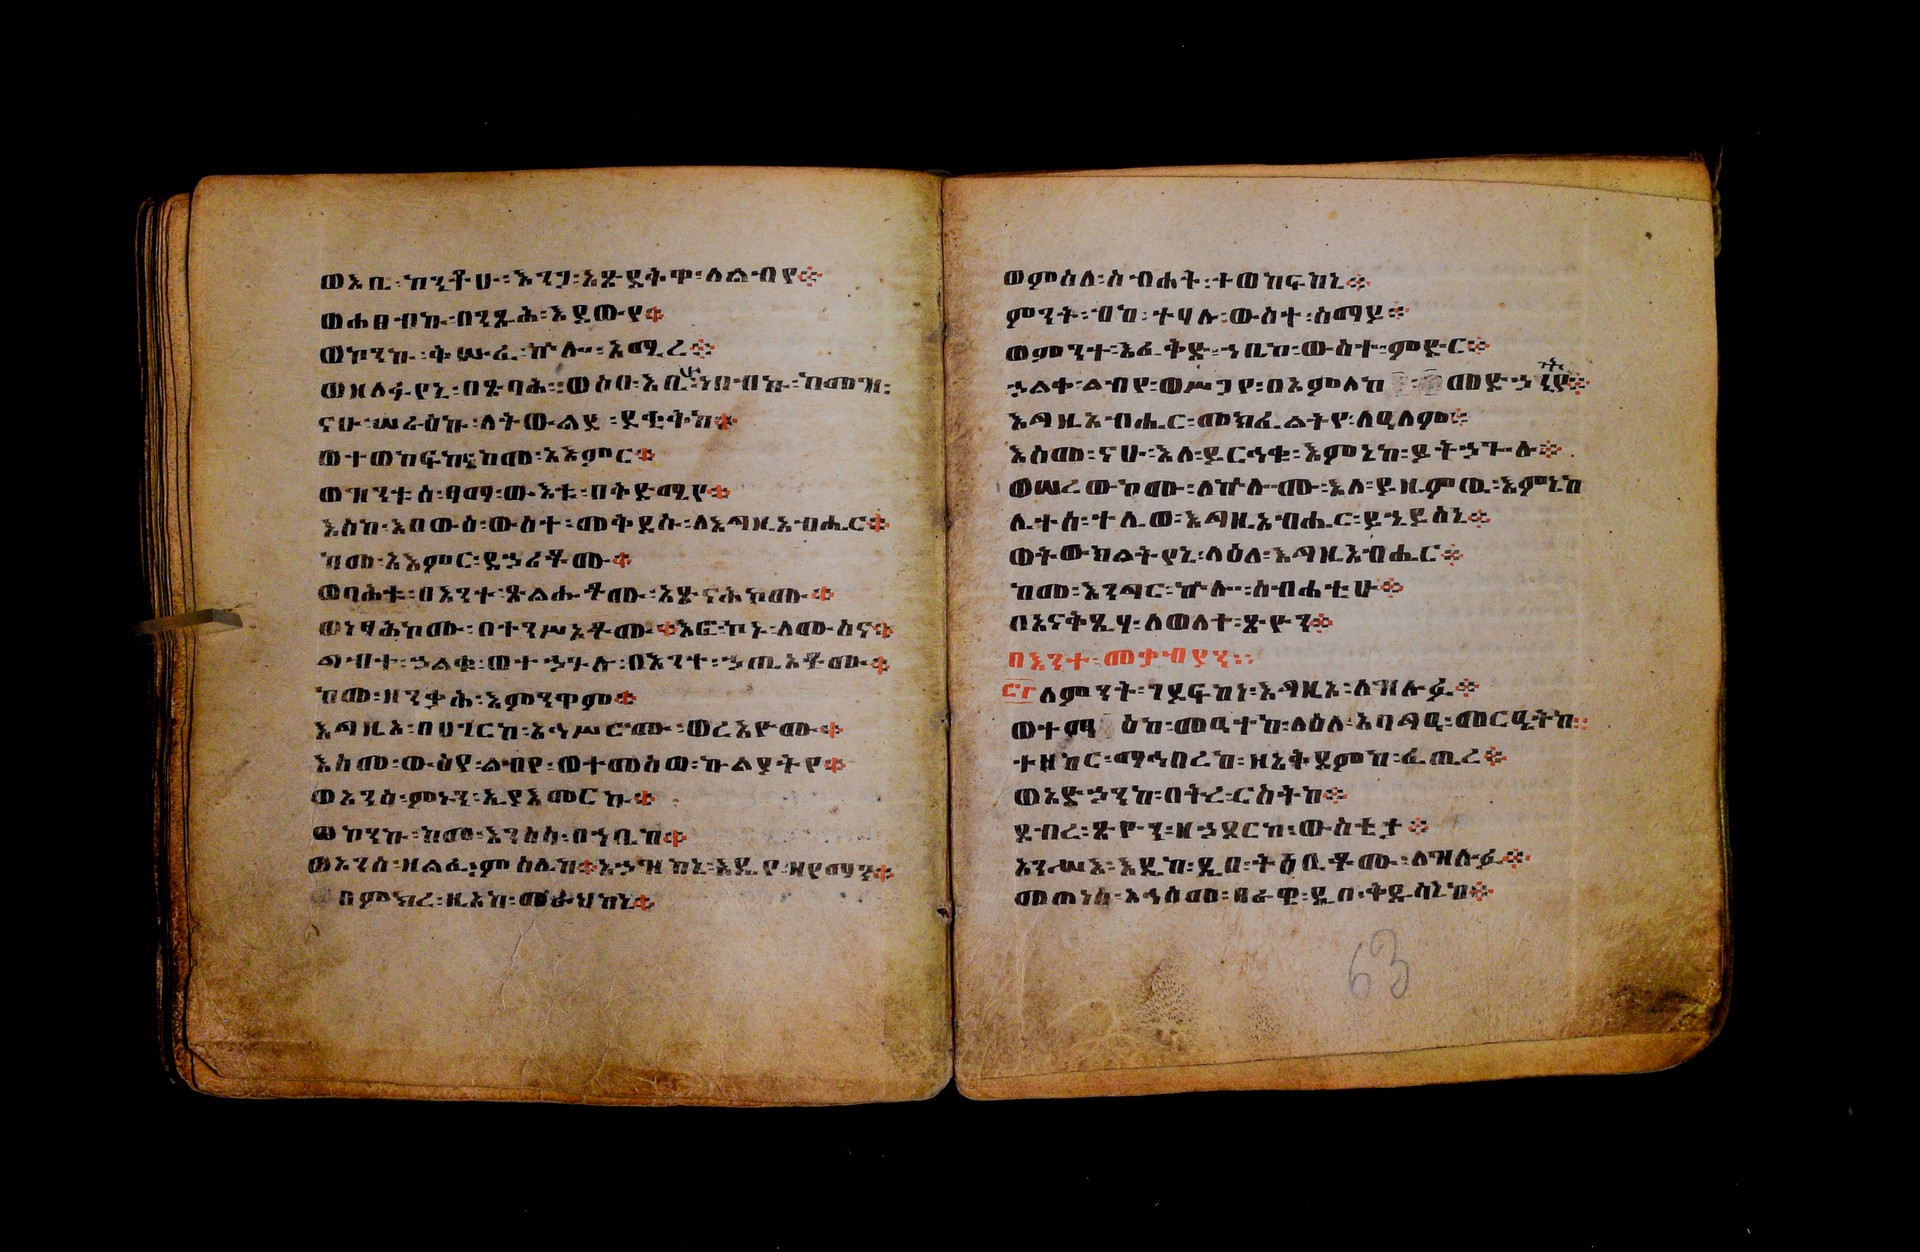 ወእቤ፡ከንቶሁ፡እንጋ፡አጽደትዋ፡ለልብየ፨
ወሐፀብኩ፡በንጹሕ፡እደውየ፨
ወኮንኩ፡ቅሡፈ፡ኵሎ፡አሚረ፨
ወዘለፋየኒ፡በጽባሕ፡ወሶበ፡እቤ፡ነበብኩ፡ከመዝ፡
ናሁ፡ሠራዕኩ፡ለትውልደ፡ደቂቅከ፨
ወተወከፍኩ፡ከመ፡አእምር፨
ወዝንቱ፡ስ፡ፃማ፡ውእቱ፡በቅድሜየ፨
እስከ፡እበውዕ፡ውስተ፡መቅደሱ፡ለእግዚአብሔር፨
ከመ፡አእምር፡ደኃሪቶሙ፨
ወባሕቱ፡በእንተ፡ጽልሑቶሙ፡አጽናሕኮሙ፨
ወነፃሕኮሙ፡በተንሥኦቶሙ፨እፎ፡ኮኑ፡ለሙስና፨
ግብተ፡ኃልቁ፡ወተኃጕሉ፡በእንተ፡ኃጢአቶሙ፨
ከመ፡ዘንቃሕ፡እምንዋም፨
እግዚኦ፡በሀገርከ፡አኀሥርሙ፡ወረእዮሙ፨
እስመ፡ውዕየ፡ልብየ፡ወተመስወ፡ኵልያትየ፨
ወአንሰ፡ምኑን፡ኢያእመርኩ፨
ወኮንኩ፡ከመ፡እንስሳ፡በኀቤከ፨
ወአንሰ፡ዘልፈ፡ምስሌከ፨አኃዝከኒ፡እዴየ፡ዘየማን፨
በምክረ፡ዚአከ፡መራህከኒ፨
ወምስለ፡ስብሐት፡ተወከፍከኒ፨
ምንት፡ብከ፡ተሃሉ፡ውስተ፡ሰማይ፨
ወምንተ፡እፈቅድ፡ኀቤከ፡ውስተ፡ምድር፨
ኃልቀ፡ልብየ፡ወሥጋየ፡በአምላከ፡መድኃኒየ፨
እግዚአብሔር፡መክፈልትየ፡ለዓለም፨
እስመ፡ናሁ፡እለ፡ይርኅቁ፡እምኔከ፡ይትኃጐሉ፨
ወሠረውኮሙ፡ለኵሎሙ፡እለ፡ይዜምዉ፡እምኔከ
ሊተሰ፡ተሊወ፡እግዚአብሔር፡ይኄይሰኒ፨
ወትውክልትየኒ፡ላዕለ፡እግዚአብሔር፨
ከመ፡እንግር፡ኵሎ፡ስብሐቲሁ፨
በአናቅጺሃ፡ለወለተ፡ጽዮን፨
በእንተ፡መቃብያን፨
ለምንት፡ገደፍከነ፡እግዚኦ፡ለዝሉፉ፨
ወተምዕከ፡መዓተከ፡ላዕለ፡አባግዓ፡መርዔትከ፨
ተዘከር፡ማኅበረከ፡ዘአቅደምከ፡ፈጢረ፨
ወአድኃንከ፡በትረ፡ርስትከ፨
ደብረ፡ጽዮን፡ዘኃደርከ፡ውስቴታ፨
አንሥእ፡እዴከ፡ዲበ፡ትዕቢቶሙ፡ለዝሉፉ፨
መጠነ፡አኅሠመ፡ፀራዊ፡ዲበ፡ቅዱሳኒከ፨
63